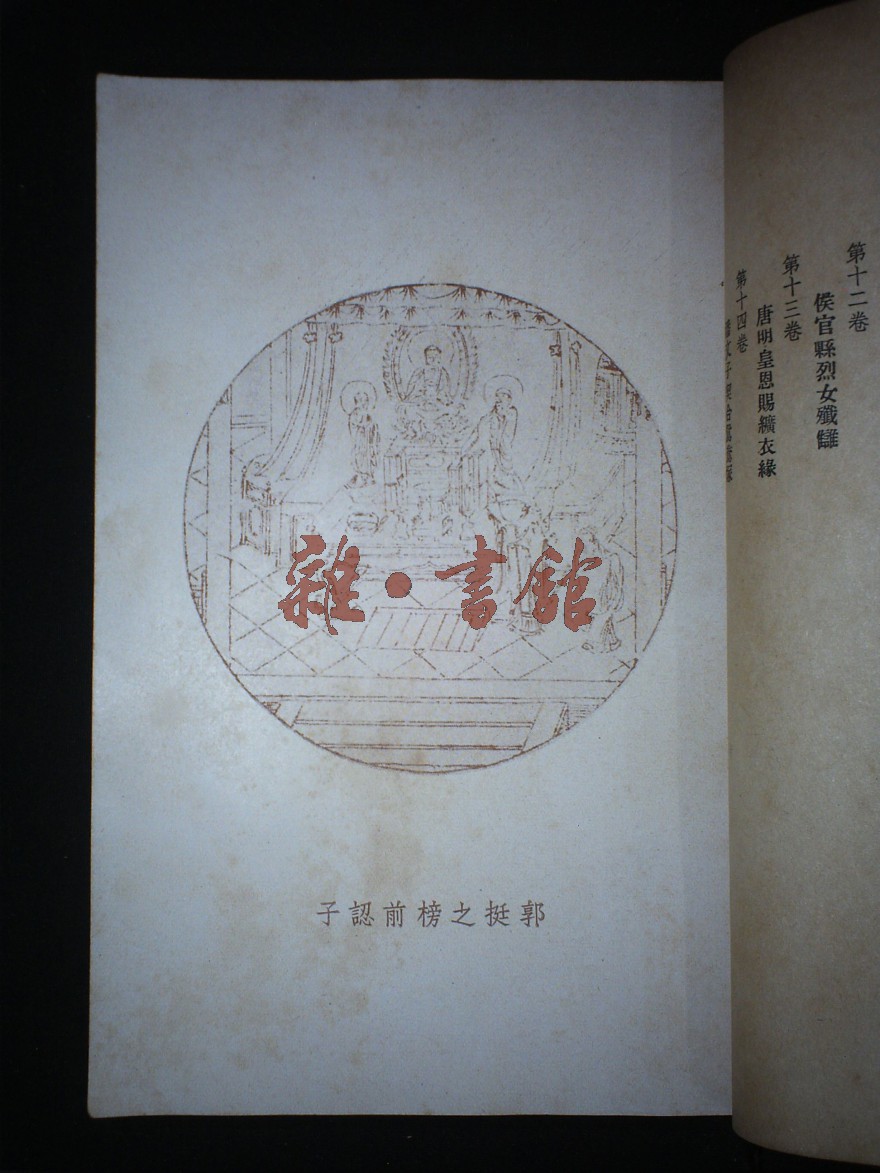 第十二卷
侯官縣烈女殲讎
第十三卷
唐明皇恩賜纊衣緣
第十四卷
雜·書館
郭挺之榜前認子